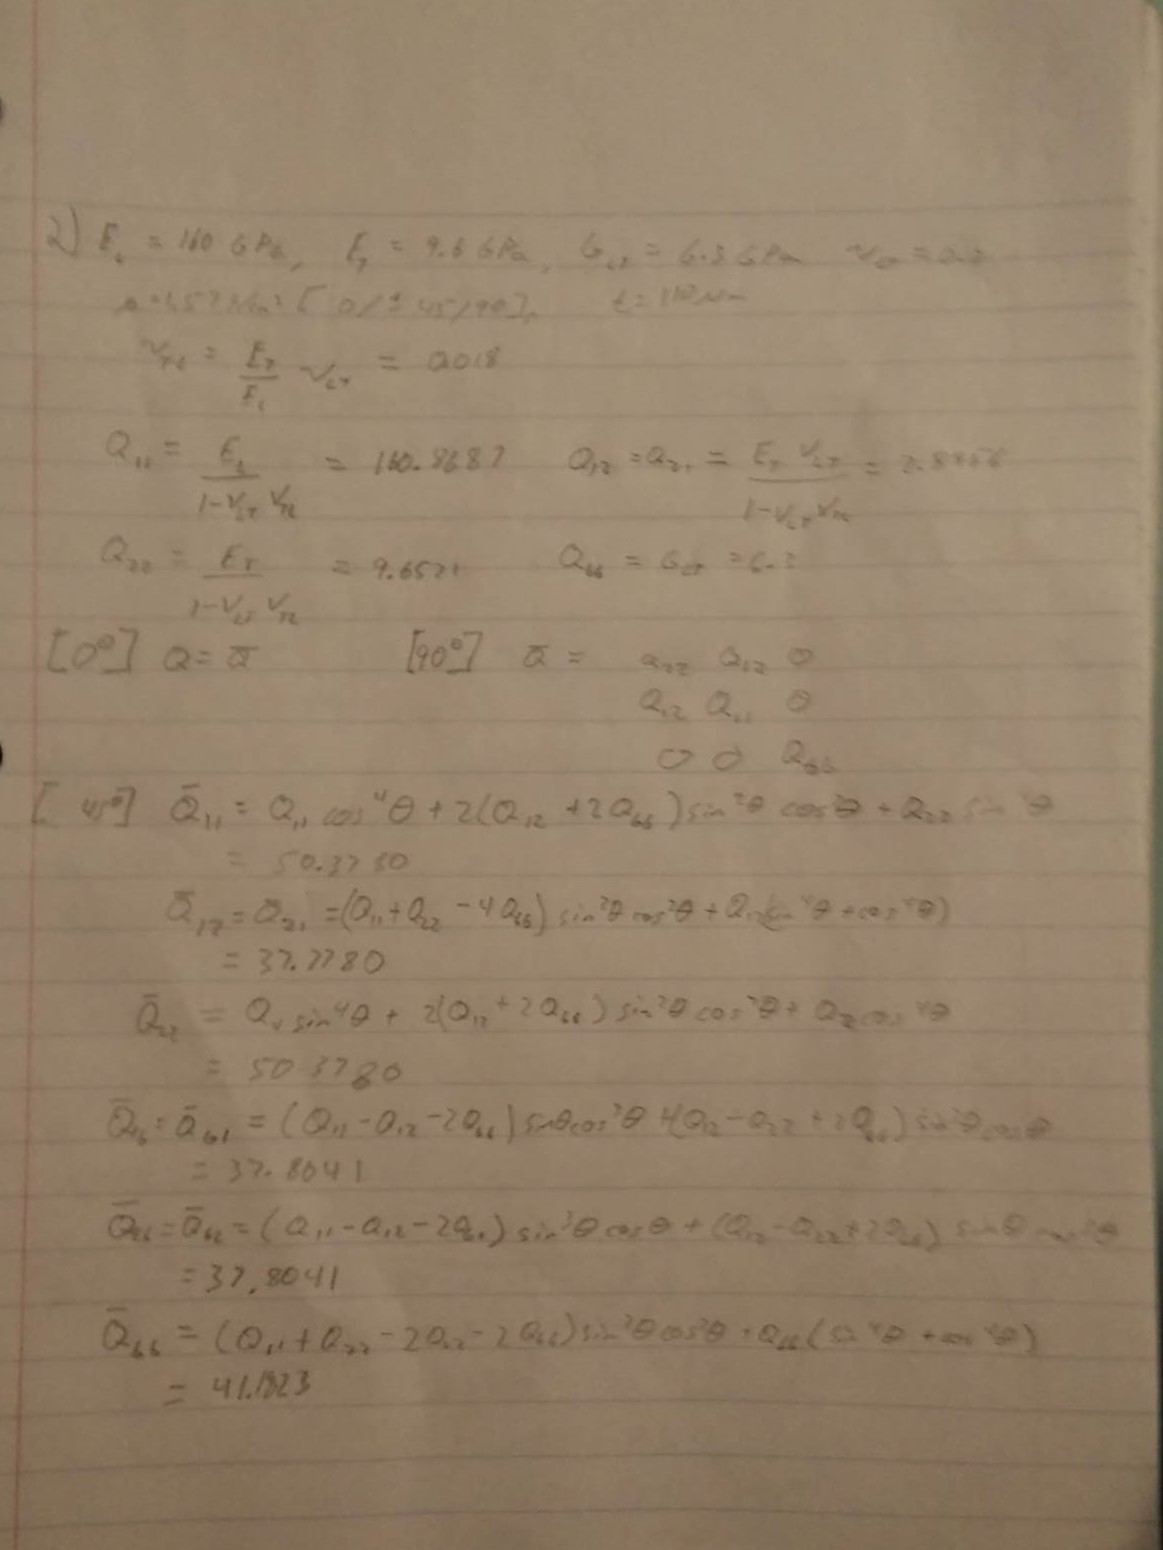 2) E_L = 160 GPa, E_T = 9.6 GPa, G_LT = 6.3 GPa
[0/±45/90] t = 110 μm
ν_TL = E_T/E_L ν_LT = 0.018
Q_11 = E_L/(1-ν_LT ν_TL) = 160.8687 Q_12 = Q_21 = E_T ν_LT/(1-ν_LT ν_TL) =
Q_22 = E_T/(1-ν_LT ν_TL) = 9.6521 Q_66 = G_LT = 6.3
[0°] Q = Q̄ [90°] Q̄ = Q_22 Q_12 0
Q_12 Q_11 0
0 0 Q_66
[45°] Q̄_11 = Q_11 cos^4θ + 2(Q_12 + 2Q_66) sin^2θ cos^2θ + Q_22 sin^4θ
= 50.3780
Q̄_12 = Q̄_21 = (Q_11 + Q_22 - 4Q_66) sin^2θ cos^2θ + Q_12(sin^4θ + cos^4θ)
= 37.7780
Q̄_22 = Q_11 sin^4θ + 2(Q_12 + 2Q_66) sin^2θ cos^2θ + Q_22 cos^4θ
= 50.3780
Q̄_16 = Q̄_61 = (Q_11 - Q_12 - 2Q_66) sinθ cos^3θ + (Q_12 - Q_22 + 2Q_66) sin^3θ cosθ
= 37.8041
Q̄_26 = Q̄_62 = (Q_11 - Q_12 - 2Q_66) sin^3θ cosθ + (Q_12 - Q_22 + 2Q_66) sinθ cos^3θ
= 37.8041
Q̄_66 = (Q_11 + Q_22 - 2Q_12 - 2Q_66) sin^2θ cos^2θ + Q_66(sin^4θ + cos^4θ)
= 41.1823